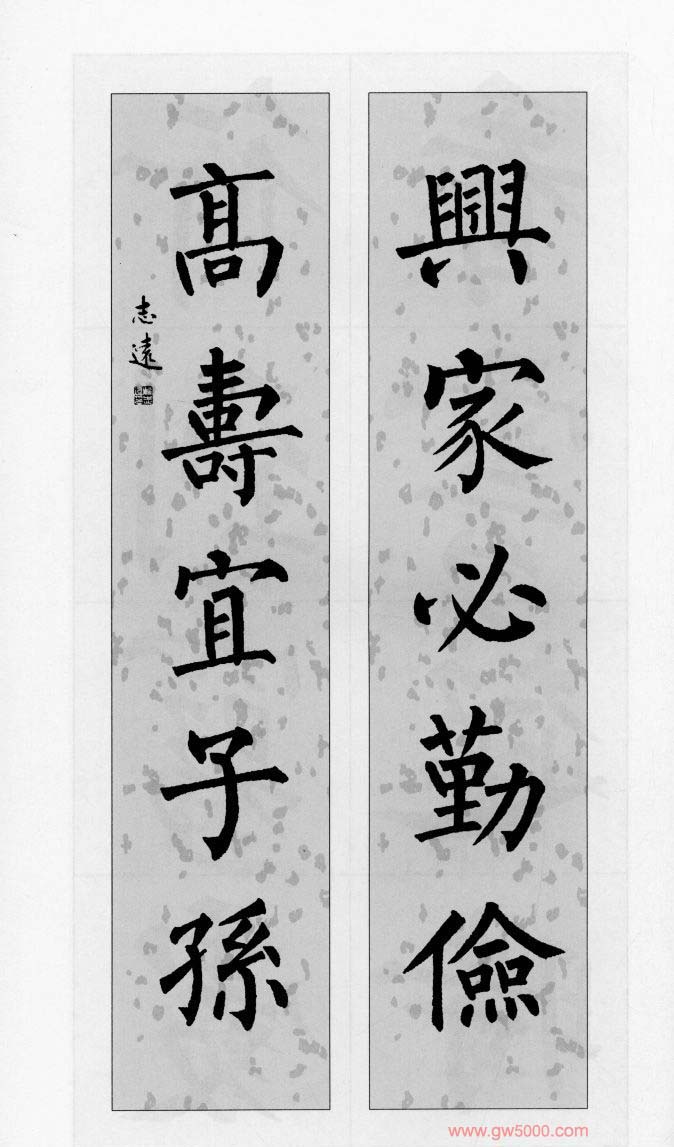 興家必勤儉
髙壽宜子孫
志遠
www.gw5000.com